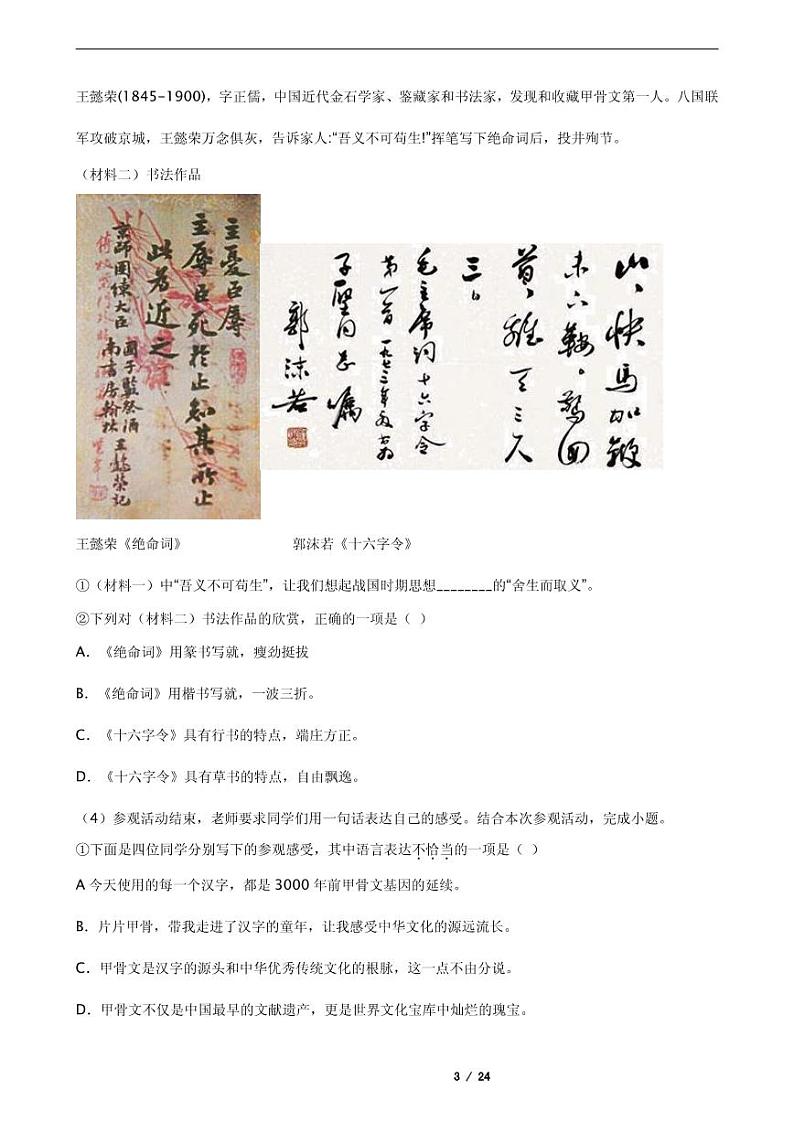 王懿荣(1845-1900)，字正儒，中国近代金石学家、鉴藏家和书法家，发现和收藏甲骨文第一人。八国联
军攻破京城，王懿荣万念俱灰，告诉家人:“吾义不可苟生!”挥笔写下绝命词后，投井殉节。
（材料二）书法作品
主憂臣辱
主辱臣死於止知其所止
此为近之
京師團練大臣
國子監祭酒
南書房翰林
王懿榮记
山，快馬加鞭
未下鞍。驚回
首，離天三尺
三。
毛主席词十六字令
第一首
子壓同志
嘱
郭沫若
王懿荣《绝命词》
郭沫若《十六字令》
①（材料一）中“吾义不可苟生”，让我们想起战国时期思想________的“舍生而取义”。
②下列对（材料二）书法作品的欣赏，正确的一项是（ ）
A．《绝命词》用篆书写就，瘦劲挺拔
B．《绝命词》用楷书写就，一波三折。
C．《十六字令》具有行书的特点，端庄方正。
D．《十六字令》具有草书的特点，自由飘逸。
（4）参观活动结束，老师要求同学们用一句话表达自己的感受。结合本次参观活动，完成小题。
①下面是四位同学分别写下的参观感受，其中语言表达不恰当的一项是（ ）
A 今天使用的每一个汉字，都是 3000 年前甲骨文基因的延续。
B．片片甲骨，带我走进了汉字的童年，让我感受中华文化的源远流长。
C．甲骨文是汉字的源头和中华优秀传统文化的根脉，这一点不由分说。
D．甲骨文不仅是中国最早的文献遗产，更是世界文化宝库中灿烂的瑰宝。
3 / 24